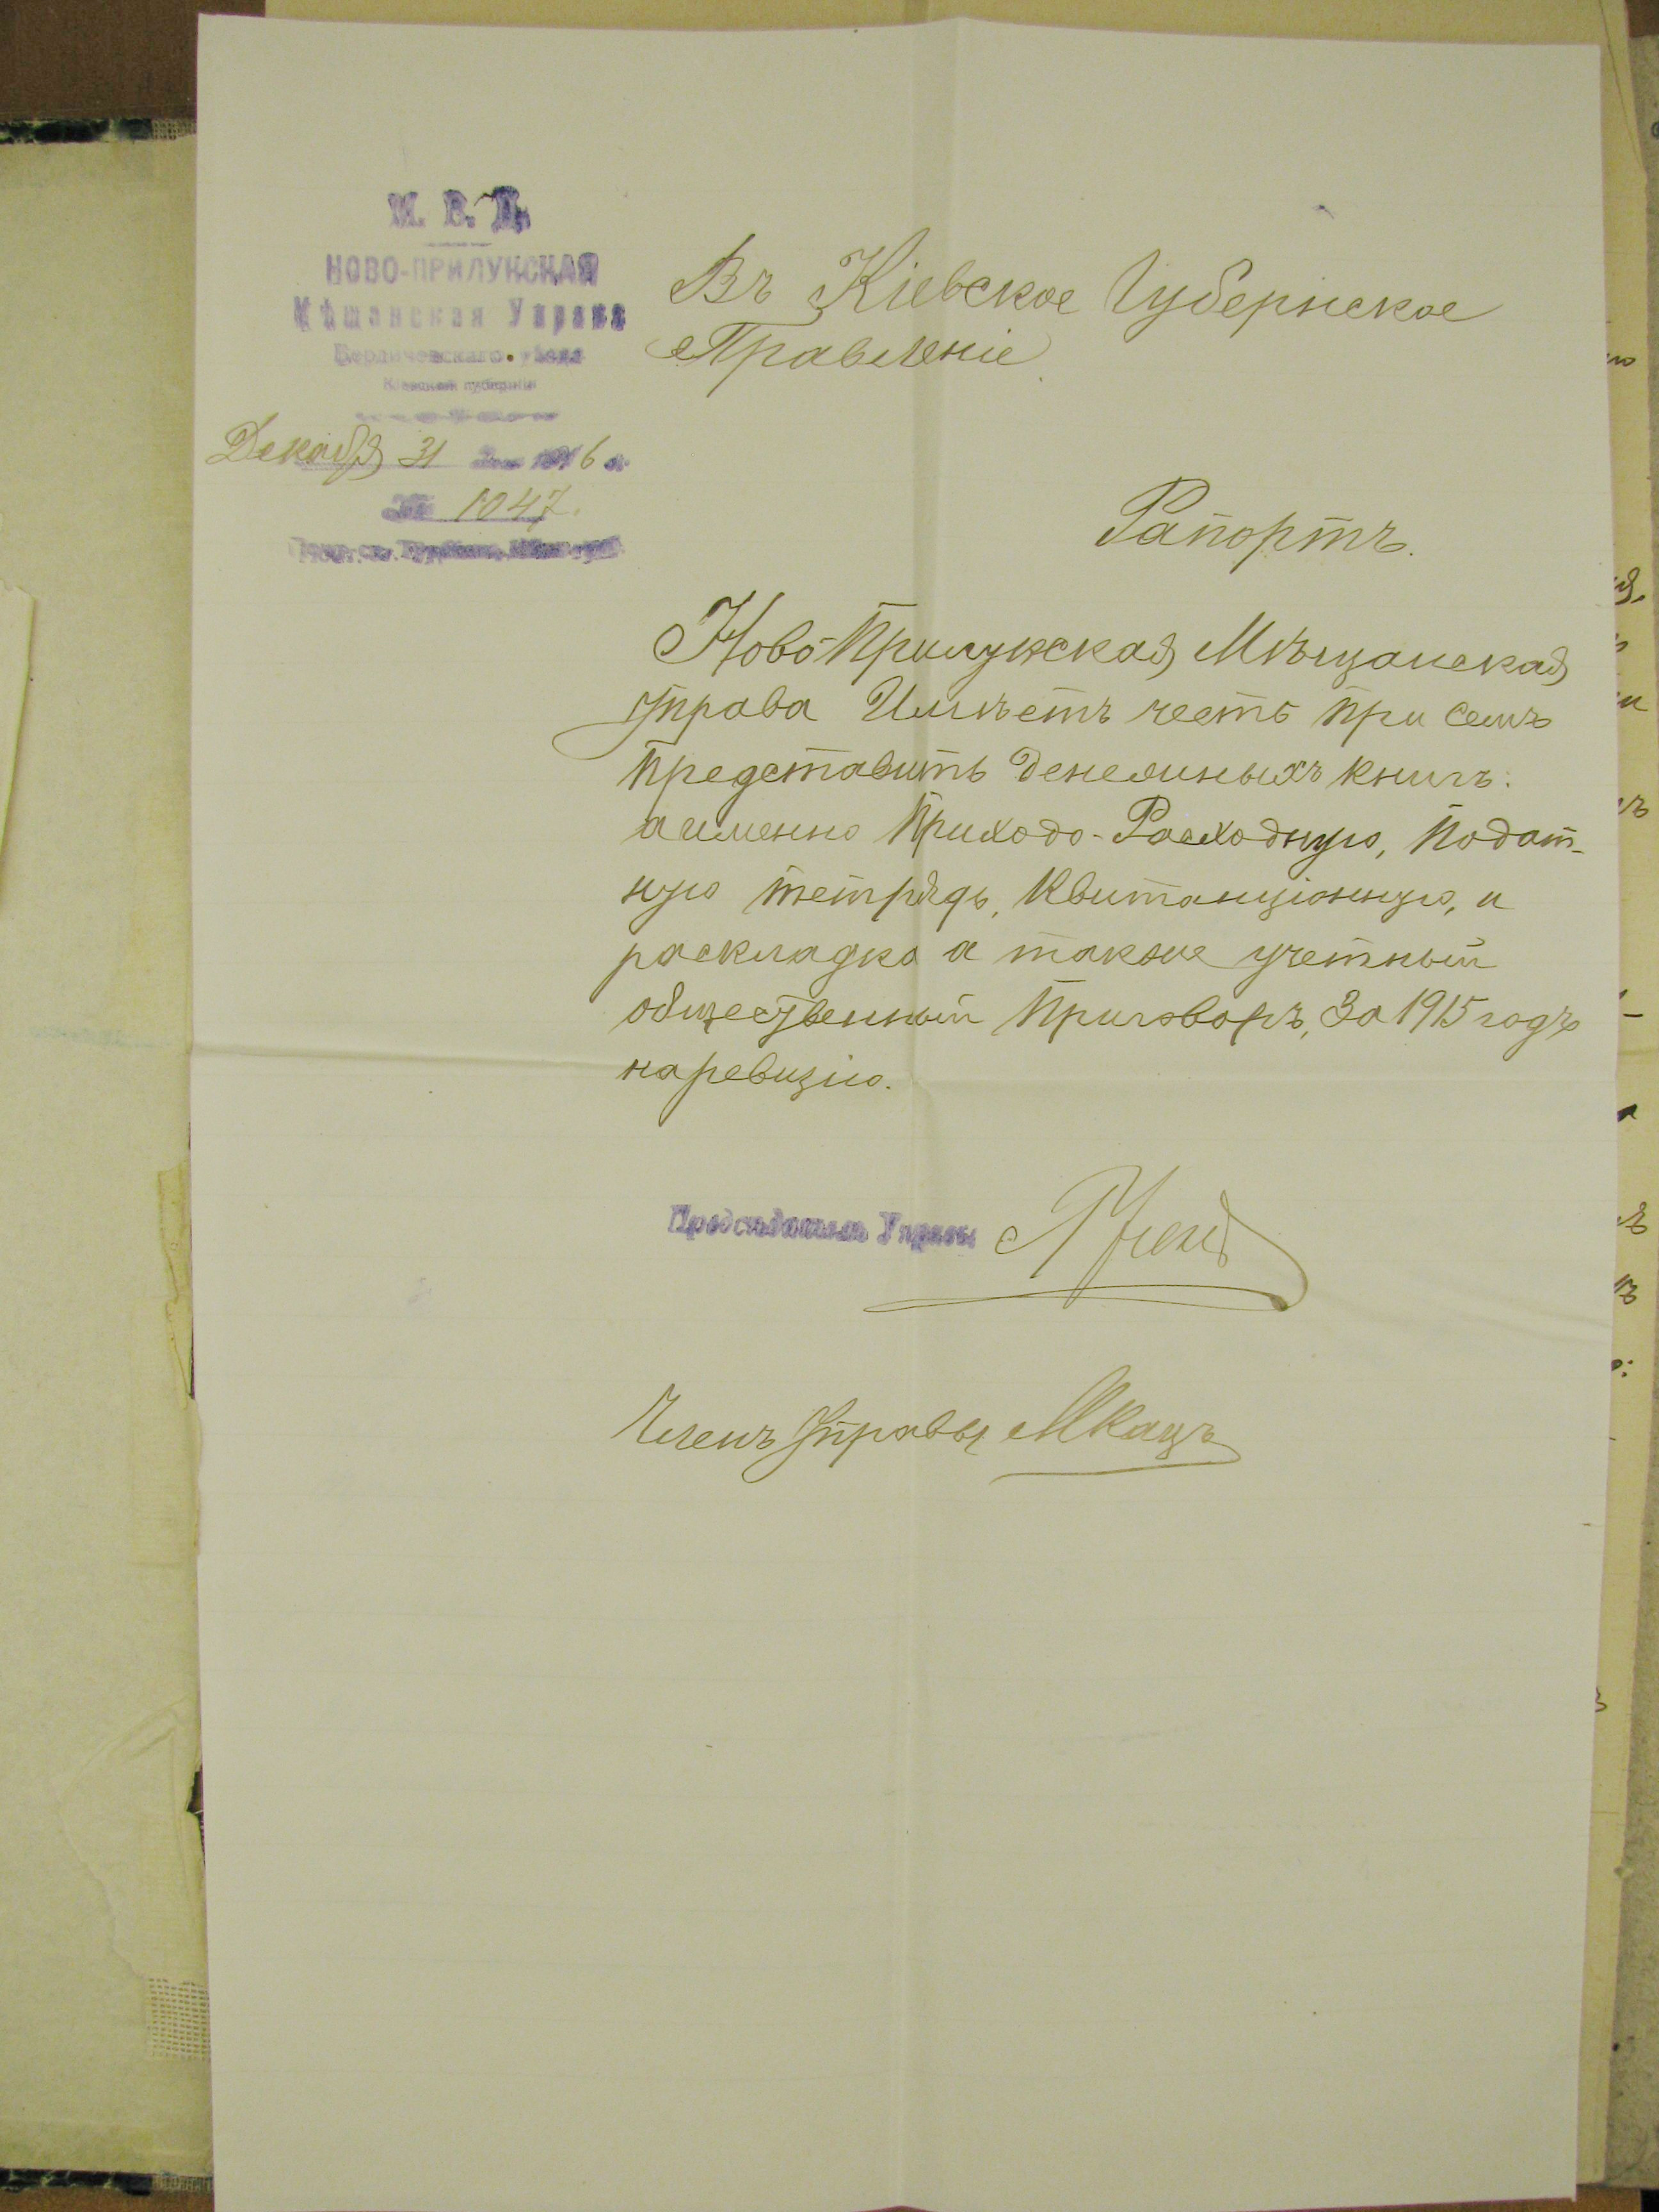 М. В. Д.
НОВО-ПРИЛУКСКАЯ
Мѣщанская Управа
Бердичевскаго уѣзда
Кіевской губерніи
Декабря 31 дня 1916 г.
№ 1047.
Въ Кіевское Губернское
Правленіе
Рапортъ.
Ново-Прилукская Мѣщанская
Управа Имѣетъ честь при семъ
представить денежныхъ книгъ:
а именно Приходо-Расходную, Подат-
ную тетрядь, Квитанціонную, и
раскладка а также учетный
общественный Приговоръ, За 1915 годъ
наревизію.
Предсѣдатель Управы
Членъ Управы МКацъ